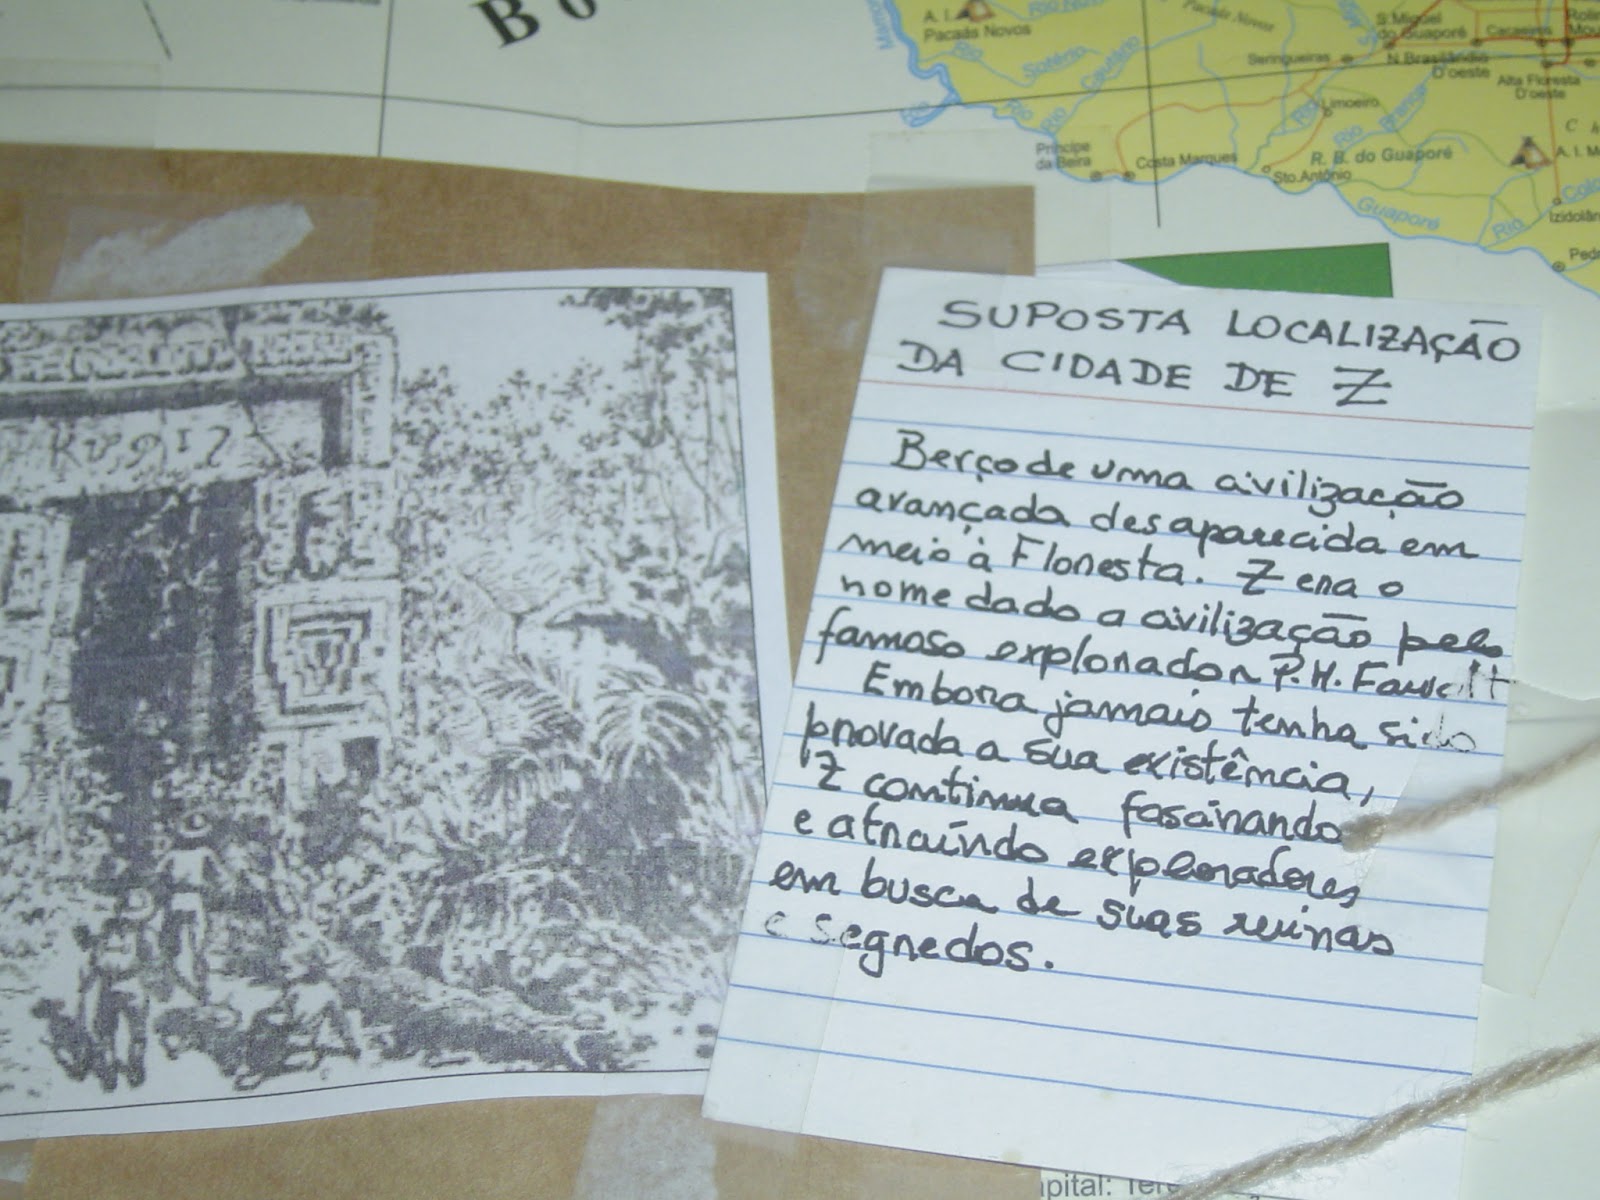 B o
A. I.
Pacaás Novos
Rio
Pacaás Novos
Rio Sotério
Rio Cautário
Rio
S. Miguel
do Guaporé
Cacaieiros
Seringueiras
N. Brasilândia
D'oeste
Alta Floresta
D'oeste
Limoeiro
Rio
Rio Branco
Príncipe
da Beira
Costa Marques
Sto. Antônio
R. B. do Guaporé
Guaporé
Rio
A. I.
Izidolân
Ped
SUPOSTA LOCALIZAÇÃO
DA CIDADE DE Z
Berço de uma civilização
avançada desaparecida em
meio à Floresta. Z era o
nome dado a civilização pelo
famoso explorador P. H. Fawcett
Embora jamais tenha sido
provada a sua existência,
Z continua fascinando
e atraíndo exploradores
em busca de suas ruinas
e segredos.
apital: Tere